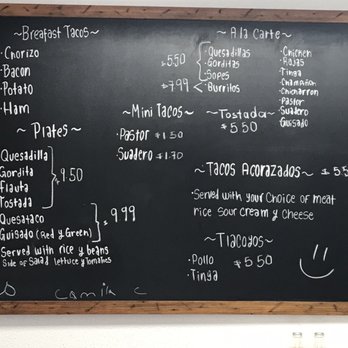 ~Breafast Tacos~
·Chorizo
·Bacon
·Potato
·Ham
~Plates~
Quesadilla
Gordita
Flauta
Tostada
$9.50
Quesataco
Guisado (Red y Green)
$9.99
Served with rice y beans
Side of Salad lettuce y Tomatoes
~A la Carte~
$5.50
·Quesadillas
·Gorditas
·Sopes
$7.99
·Burritos
·Chicken
·Rajas
·Tinga
·Champiñon
·Chicharron
·Pastor
·Suadero
·Guisado
~Mini Tacos~
·Pastor $1.50
·Suadero $1.70
~Tostada~
$5.50
~Tacos Acorazados~ $5.5
·Served with your Choice of meat
rice Sour Cream y Cheese
~Tlacoyos~
·Pollo
·Tinga
$5.50
Camila C